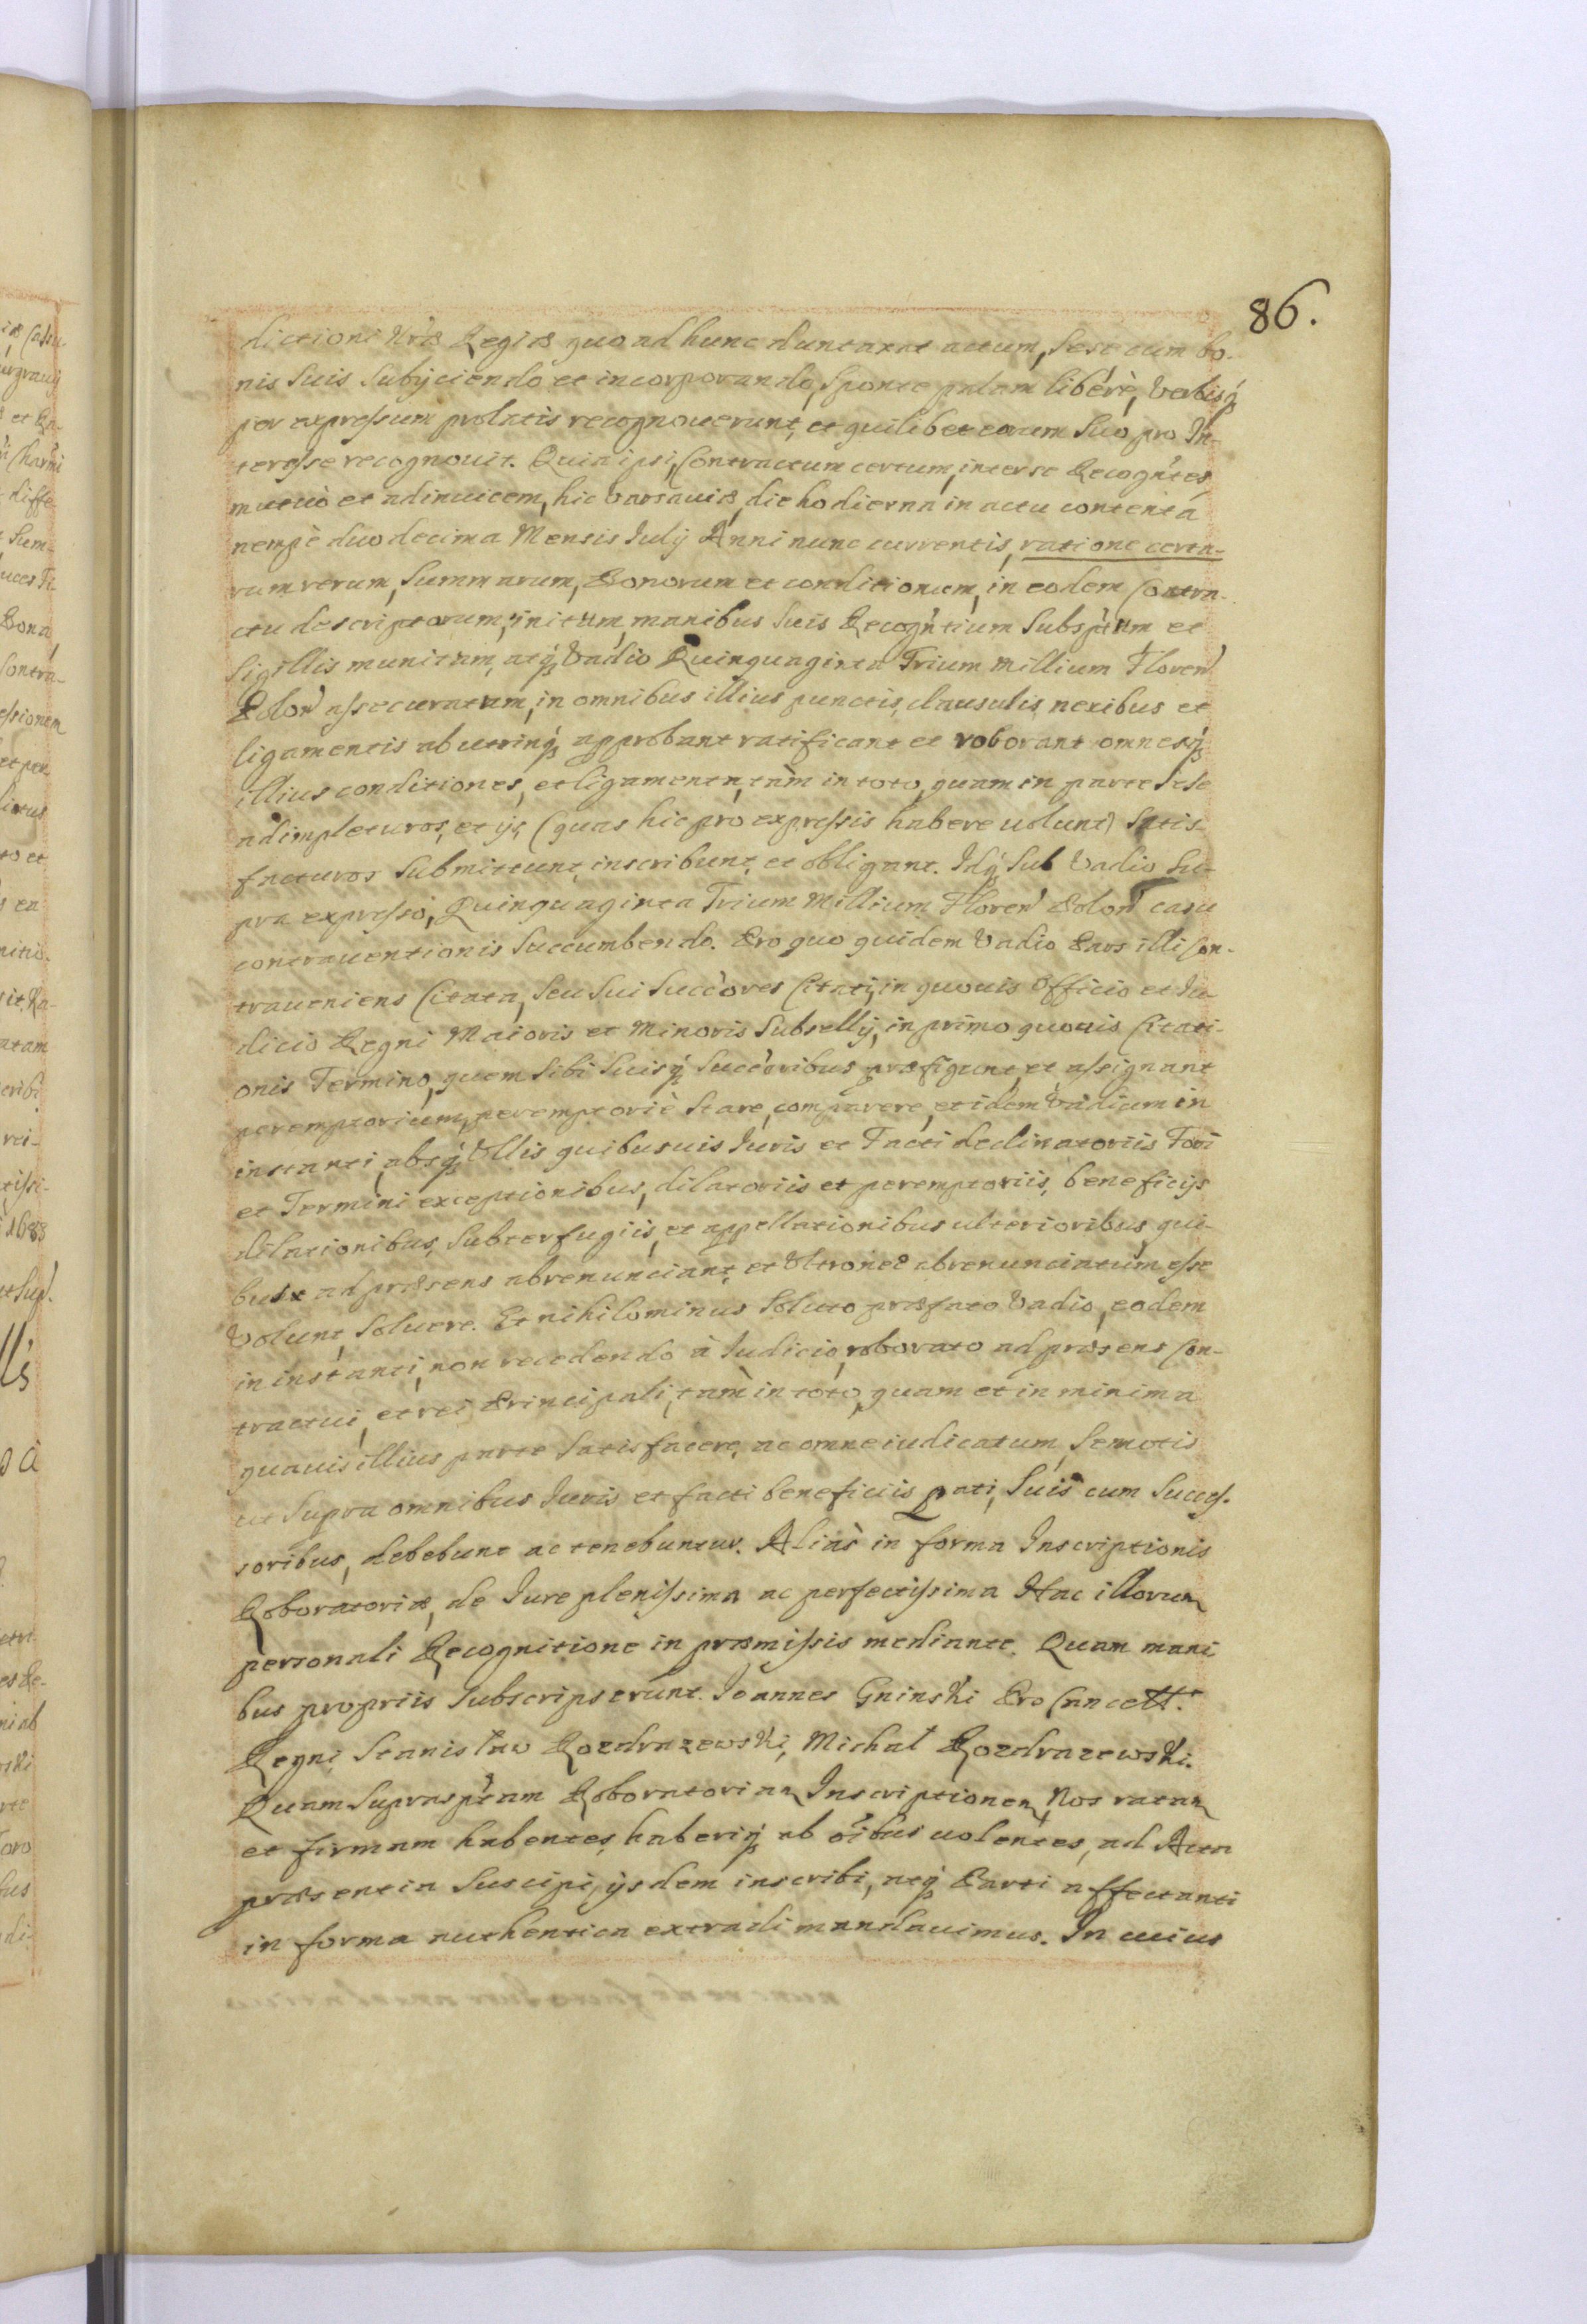 86.
dictioni Nr̃æ Regiæ quo ad hunc duntaxat actum, sese cum bo-
nis suis subijciendo et incorporando, sponte palam liberè, Verbisq́
per expressum prolatis recognouerunt, et quilibet eorum suo pro In-
teresse recognouit. Quia ipsi, Contractum certum, inter se Recogñtes,
mutuò et adinuicem, hic Varsauiæ, die hodierna in actu contenta
nempè duodecima Mensis Iulij Anni nunc currentis, ratione certa-
rum rerum, Summarum, Bonorum et conditionum, in eodem Contra-
ctu descriptorum, initum, manibus suis Recogñtium Subsp̃tum et
Sigillis munitum, atq́ Vadio Quinquaginta Trium Millium Floren̄
Polon̄ assecuratum, in omnibus illius punctis, clausulis nexibus et
ligamentis ab utrinq́ approbant ratificant et roborant omnesq́
illius conditiones, et ligamenta, tàm in toto, quam in parte Sese
adimpleturos, et ijs, (quas hic pro expressis habere uolunt) Satis-
facturos Submittunt, inscribunt, et obligant. Idq́ Sub Vadio Su-
pra expresso, Quinquaginta Trium Millium Floren̄ Polon̄ casu
contrauentionis Succumbendo. Pro quo quidem Vadio Pars illi Con-
traueniens Citata, Seu Sui Succ̃ores Citati, in quouis Officio et Iu-
dicio Regni Maioris et Minoris Subsellij, in primo quouis Citati-
onis Termino, quem Sibi Suisq́ Succ̃oribus præfigunt, et assignant
peremptorium, peremptoriè Stare, comparere, et idem Vadium in
instanti, absq́ Ullis quibusuis Iuris et Facti declinatoriis Fori
et Termini exceptionibus, dilatoriis et peremptoriis, beneficijs
dilationibus, Subterfugiis, et appellationibus ulterioribus, qui-
bus ad præsens abrenunciant, et Vltroneè abrenunciatum esse
Volunt, Soluere. Et nihilominus Soluto præfato Vadio, eodem
in instanti, non recedendo à Iudicio, roborato ad præsens Con-
tractui, et rei Principali, tàm in toto, quam et in minima
quauis illius parte Satisfacere, ac omne iudicatum, Semotis
ut Supra omnibus Iuris et facti beneficiis pati, Suis cum Succes-
soribus, debebunt ac tenebuntur. Aliàs in forma Inscriptionis
Roboratoriæ, de Iure plenissima ac perfectissima Hac illorum
personali Recognitione in præmissis mediante. Quam mani
bus propriis Subscripserunt. Ioannes Gninski Pro Cancell.
Regni, Stanisław Rozdrazewski, Michał Rozdrazewski.
Quam Suprasp̃tam Roboratoriam Inscriptionem, Nos ratam
et firmam habentes, haberiq́ ab oĩbus uolentes, ad Acta
præsentia Suscipi, ijsdem inscribi, atq́ Parti affectanti
in forma authentica extradi mandauimus. In cuius